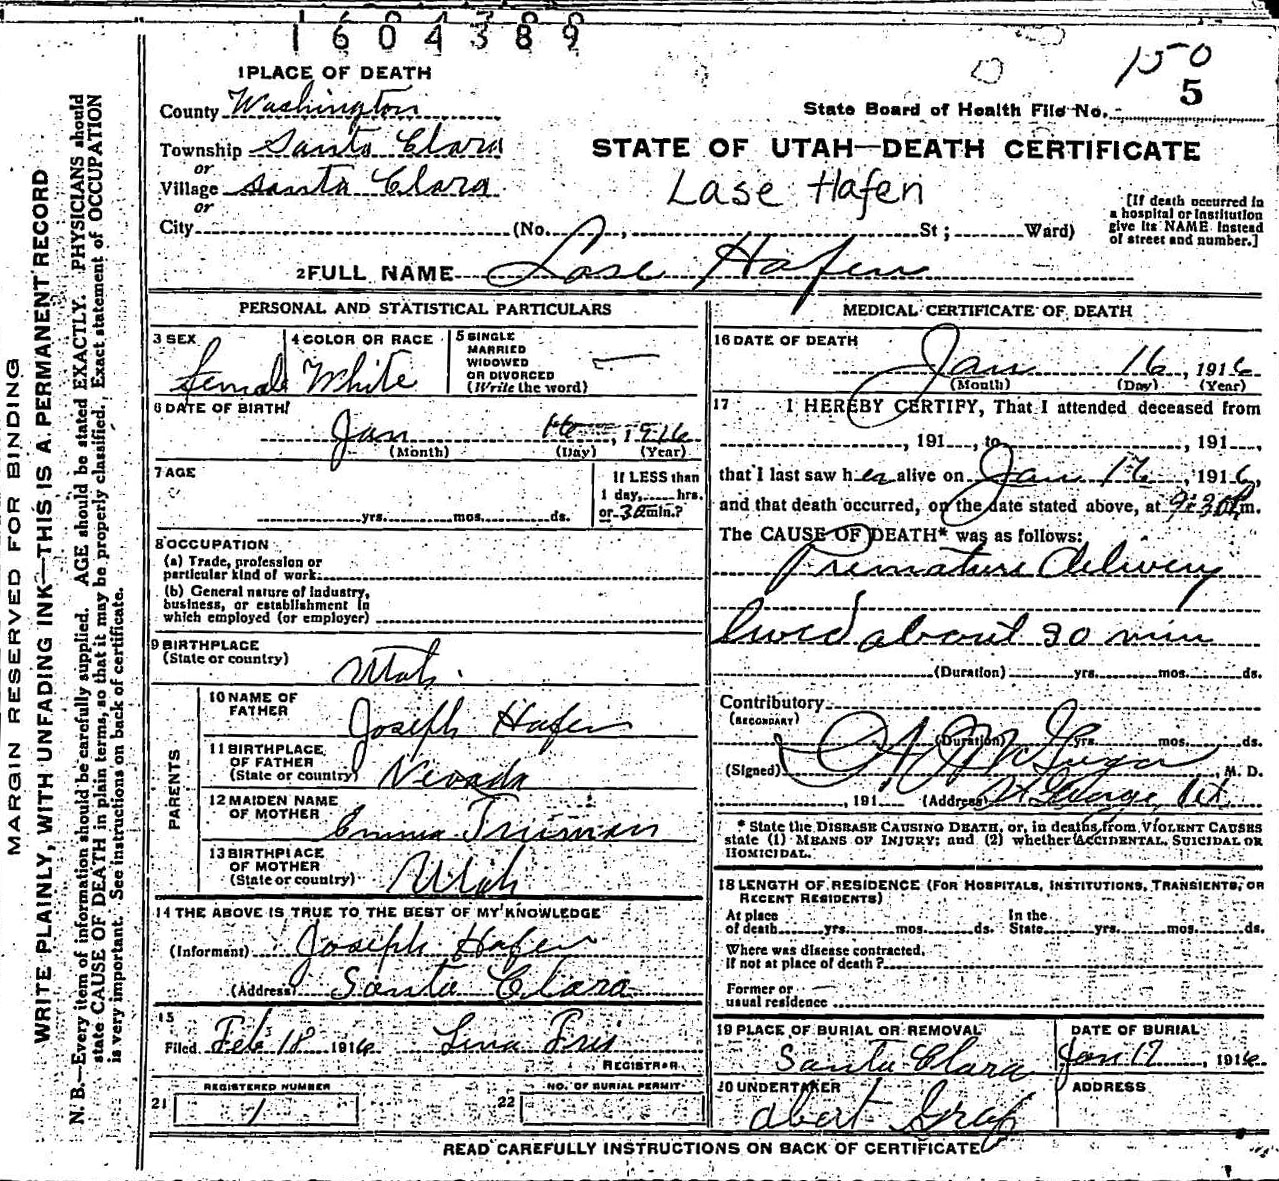 1604389
150
1 PLACE OF DEATH
County Washington
State Board of Health File No. 5
Township Santa Clara
or
Village Santa Clara
or
STATE OF UTAH—DEATH CERTIFICATE
Lase Hafen
[If death occurred in
a hospital or institution
give its NAME instead
of street and number.]
City (No. , St; Ward)
2 FULL NAME Lase Hafen
PERSONAL AND STATISTICAL PARTICULARS
3 SEX female
4 COLOR OR RACE White
5 SINGLE
MARRIED
WIDOWED
OR DIVORCED
(Write the word)
6 DATE OF BIRTH
Jan 16, 1916
(Month) (Day) (Year)
7 AGE
If LESS than
1 day, hrs.
or 30 min.?
yrs. mos. ds.
8 OCCUPATION
(a) Trade, profession or
particular kind of work
(b) General nature of industry,
business, or establishment in
which employed (or employer)
9 BIRTHPLACE
(State or country) Utah.
PARENTS
10 NAME OF
FATHER Joseph Hafen
11 BIRTHPLACE
OF FATHER
(State or country) Nevada
12 MAIDEN NAME
OF MOTHER Emma Truman
13 BIRTHPLACE
OF MOTHER
(State or country) Utah
14 THE ABOVE IS TRUE TO THE BEST OF MY KNOWLEDGE
(Informant) Joseph Hafen
(Address) Santa Clara
15
Filed Feb 18 1916 Lena Fris
REGISTRAR
REGISTERED NUMBER
21 1
NO. OF BURIAL PERMIT
22
MEDICAL CERTIFICATE OF DEATH
16 DATE OF DEATH
Jan 16, 1916
(Month) (Day) (Year)
17 I HEREBY CERTIFY, That I attended deceased from
, 191 , to , 191 ,
that I last saw her alive on Jan 16, 1916,
and that death occurred, on the date stated above, at 9:30 P m.
The CAUSE OF DEATH* was as follows:
Premature delivery
lived about 30 min
(Duration) yrs. mos. ds.
Contributory
(SECONDARY)
(Duration) yrs. mos. ds.
(Signed) McGregor, M. D.
, 191 (Address) St George, Ut
* State the DISEASE CAUSING DEATH, or, in deaths from VIOLENT CAUSES
state (1) MEANS OF INJURY; and (2) whether ACCIDENTAL, SUICIDAL OR
HOMICIDAL.
18 LENGTH OF RESIDENCE (FOR HOSPITALS, INSTITUTIONS, TRANSIENTS, OR
RECENT RESIDENTS)
At place
of death yrs. mos. ds.
In the
State yrs. mos. ds.
Where was disease contracted,
If not at place of death?
Former or
usual residence
19 PLACE OF BURIAL OR REMOVAL
Santa Clara
DATE OF BURIAL
Jan 17, 1916
20 UNDERTAKER
Abert Graf
ADDRESS
READ CAREFULLY INSTRUCTIONS ON BACK OF CERTIFICATE
MARGIN RESERVED FOR BINDING
WRITE PLAINLY, WITH UNFADING INK—THIS IS A PERMANENT RECORD
N. B.—Every item of information should be carefully supplied. AGE should be stated EXACTLY. PHYSICIANS should
state CAUSE OF DEATH in plain terms, so that it may be properly classified. Exact statement of OCCUPATION
is very important. See instructions on back of certificate.